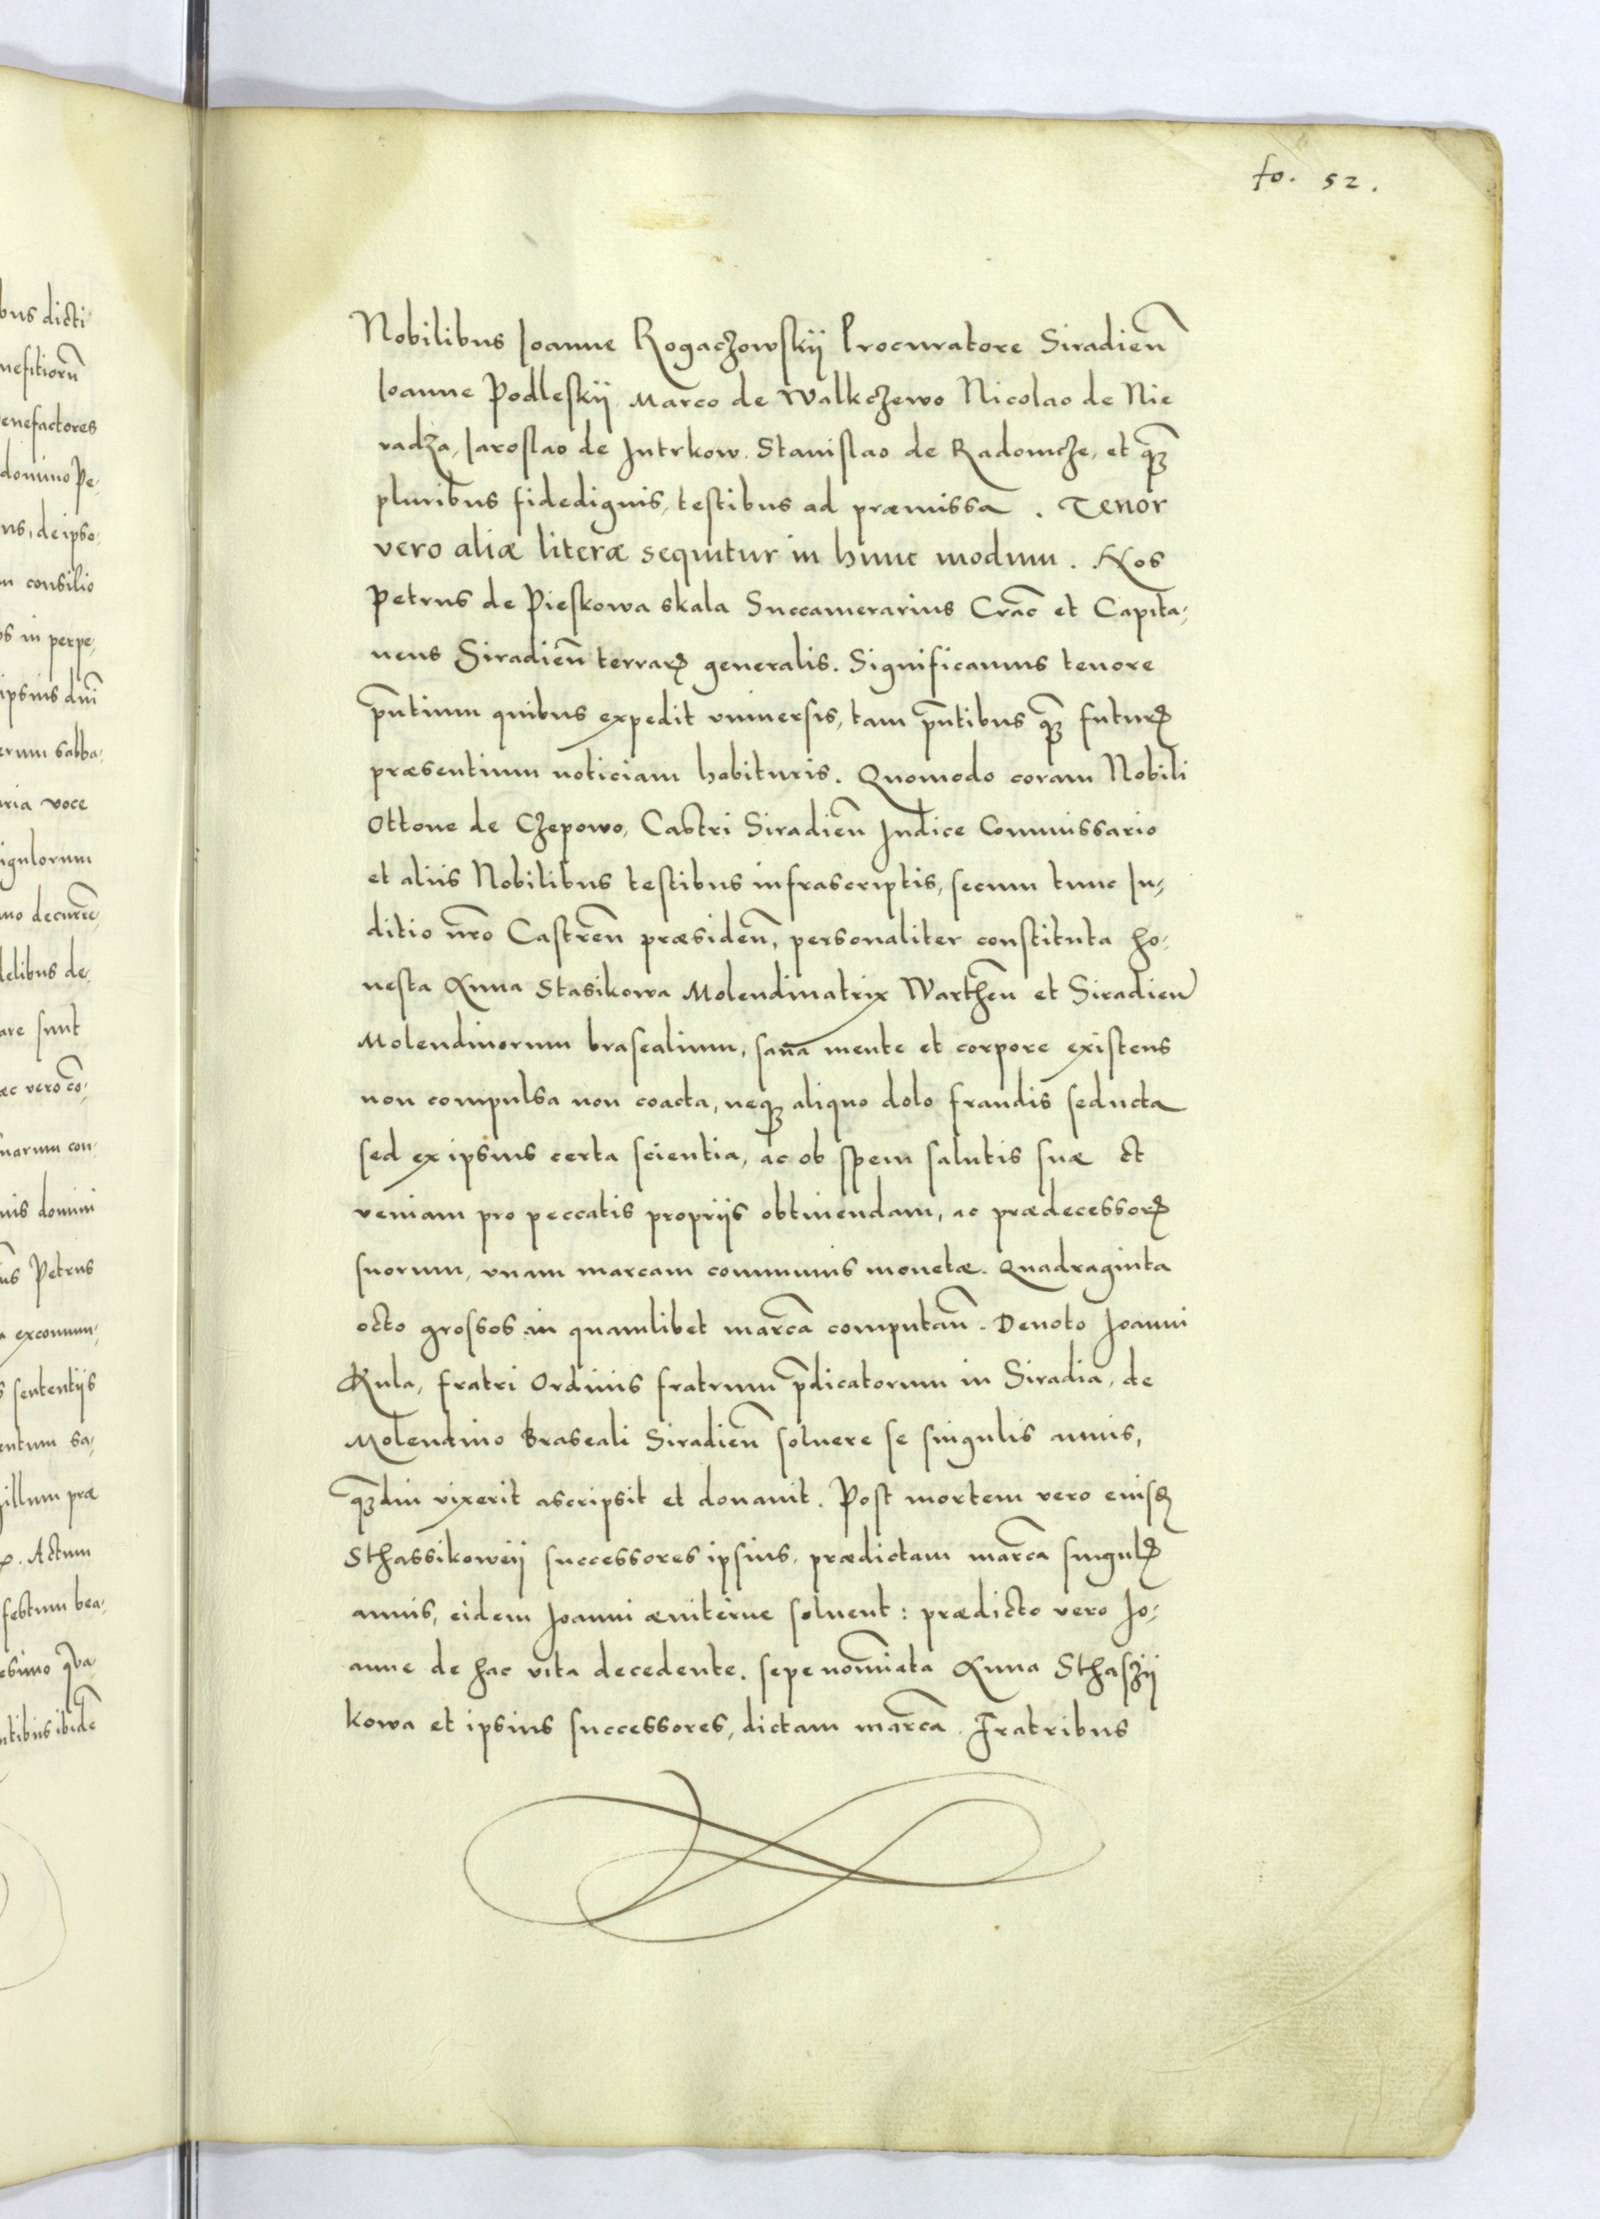 fo. 52.
Nobilibus Ioanne Rogaczowskij Procuratore Siradien̄
Ioanne Podleskij Marco de Walkczewo Nicolao de Nie
radza, Iaroslao de Intrkow. Stanislao de Radomcze, et qꝫ̄
pluribus fidedignis, testibus ad præmissa. Tenor
vero aliæ literæ sequitur in hunc modum. Nos
Petrus de Pieskowa skala Succamerarius Crac̄ et Capita,
neus Siradien̄ terrarꝫ generalis. Significamus tenore
pn̄tium quibus expedit vniuersis, tam pn̄tibus qꝫ̄ futurꝫ
præsentium noticiam habituris. Quomodo coram Nobili
Ottone de Czepowo, Castri Siradien̄ Iudice Commissario
et aliis Nobilibus testibus infrascriptis, secum tunc Iu,
ditio nr̄o Castren̄ præsiden̄, personaliter constituta ho,
nesta Anna Stasikowa Molendinatrix Warthen̄ et Siradien̄
Molendinorum brasealium, sana mente et corpore existens
non compulsa non coacta, neqꝫ aliquo dolo fraudis seducta
sed ex ipsius certa scientia, ac ob spem salutis suæ et
veniam pro peccatis propriis obtinendam, ac prædecessorꝫ
suorum, vnam marcam communis monetæ. Quadraginta
octo grossos in quamlibet marca̅ computan̄. Deuoto Joanni
Kula, fratri Ordinis fratrum p̄dicatorum in Siradia, de
Molendino Braseali Siradien̄ soluere se singulis annis,
qꝫ̄diu vixerit ascripsit et donauit. Post mortem vero eiusꝫ
Sthassikoweij successores ipsius, prædictam marca̅ singulꝫ
annis, eidem Joanni æuiterne soluent: prædicto vero Jo,
anne de hac vita decedente. sepe nomi̅ata Anna Sthaszij
kowa et ipsius successores, dictam marca̅. Fratribus